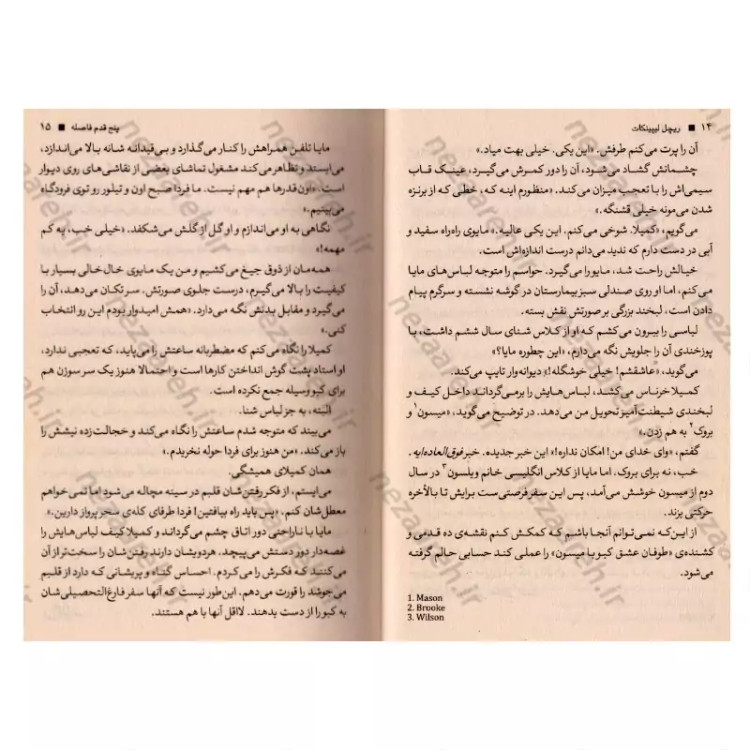 ۱۴ ■ ریچل لیپینکات
آن را پرت می‌کنم طرفش. «این یکی. خیلی بهت میاد.»
چشمانش گشاد می‌شود، آن را دور کمرش می‌گیرد، عینک قاب
سیمی‌اش را با تعجب میزان می‌کند. «منظورم اینه که، خطی که از برنزه
شدن می‌مونه خیلی قشنگه.»
می‌گویم، «کمیلا. شوخی می‌کنم. این یکی عالیه.» مایوی راه‌راه سفید و
آبی در دست دارم که ندید می‌دانم درست اندازه‌اش است.
خیالش راحت شد، مایو را می‌گیرد. حواسم را متوجه لباس‌های مایا
می‌کنم، اما او روی صندلی سبز بیمارستان در گوشه نشسته و سرگرم پیام
دادن است، لبخند بزرگی بر صورتش نقش بسته.
لباسی را بیرون می‌کشم که او از کلاس شنای سال ششم داشت، با
پوزخندی آن را جلویش نگه می‌دارم، «این چطوره مایا؟»
می‌گوید، «عاشقشم! خیلی خوشگله!» دیوانه‌وار تایپ می‌کند.
کمیلا خرناس می‌کشد، لباس‌هایش را برمی‌گرداند داخل کیف و
لبخندی شیطنت‌آمیز تحویل من می‌دهد. در توضیح می‌گوید، «میسون۱ و
بروک۲ به هم زدن.»
گفتم، «وای خدای من! امکان نداره!» این خبر جدیده. خبر فوق‌العاده‌ایه.
خب، نه برای بروک، اما مایا از کلاس انگلیسی خانم ویلسون۳ در سال
دوم از میسون خوشش می‌آمد، پس این سفر فرصتی‌ست برایش تا بالأخره
حرکتی بزند.
از این‌که نمی‌توانم آنجا باشم که کمکش کنم نقشه‌ی ده قدمی و
کشنده‌ی «طوفان عشق کبو با میسون» را عملی کند حسابی حالم گرفته
می‌شود.
1. Mason
2. Brooke
3. Wilson
پنج قدم فاصله ■ ۱۵
مایا تلفن همراهش را کنار می‌گذارد و بی‌قیدانه شانه بالا می‌اندازد،
می‌ایستد و تظاهر می‌کند مشغول تماشای بعضی از نقاشی‌های روی دیوار
است. «اون‌قدرها هم مهم نیست. ما فردا صبح اون و تیلور رو توی فرودگاه
می‌بینیم.»
نگاهی به او می‌اندازم و او گل از گلش می‌شکفد. «خیلی خب، یه کم
مهمه!»
همه‌مان از ذوق جیغ می‌کشیم و من یک مایوی خال خالی بسیار با
کیفیت را بالا می‌گیرم، درست جلوی صورتش. سر تکان می‌دهد، آن را
می‌گیرد و مقابل بدنش نگه می‌دارد. «همش امیدوار بودم این رو انتخاب
کنی.»
کمیلا را نگاه می‌کنم که مضطربانه ساعتش را می‌پاید، که تعجبی ندارد،
او استاد پشت گوش انداختن کارها است و احتمالا هنوز یک سر سوزن هم
برای کبو وسیله جمع نکرده است.
البته، به جز لباس شنا.
می‌بیند که متوجه شدم ساعتش را نگاه می‌کند و خجالت‌زده نیشش را
باز می‌کند. «من هنوز برای فردا حوله نخریدم.»
همان کمیلای همیشگی.
می‌ایستم، از فکر رفتن‌شان قلبم در سینه مچاله می‌شود اما نمی‌خواهم
معطل‌شان کنم. «پس باید راه بیافتین! فردا طرفای کله‌ی سحر پرواز دارین.»
مایا با ناراحتی دور اتاق چشم می‌گرداند و کمیلا کیف لباس‌هایش را
غصه‌دار دور دستش می‌پیچد. هردویشان دارند رفتن‌شان را سخت‌تر از آن
می‌کنند که فکرش را می‌کردم. احساس گناه و پریشانی که دارد از قلبم
می‌جوشد را قورت می‌دهم. این‌طور نیست که آنها سفر فارغ‌التحصیلی‌شان
به کبو را از دست بدهند. لااقل آنها با هم هستند.
nezaareh.ir